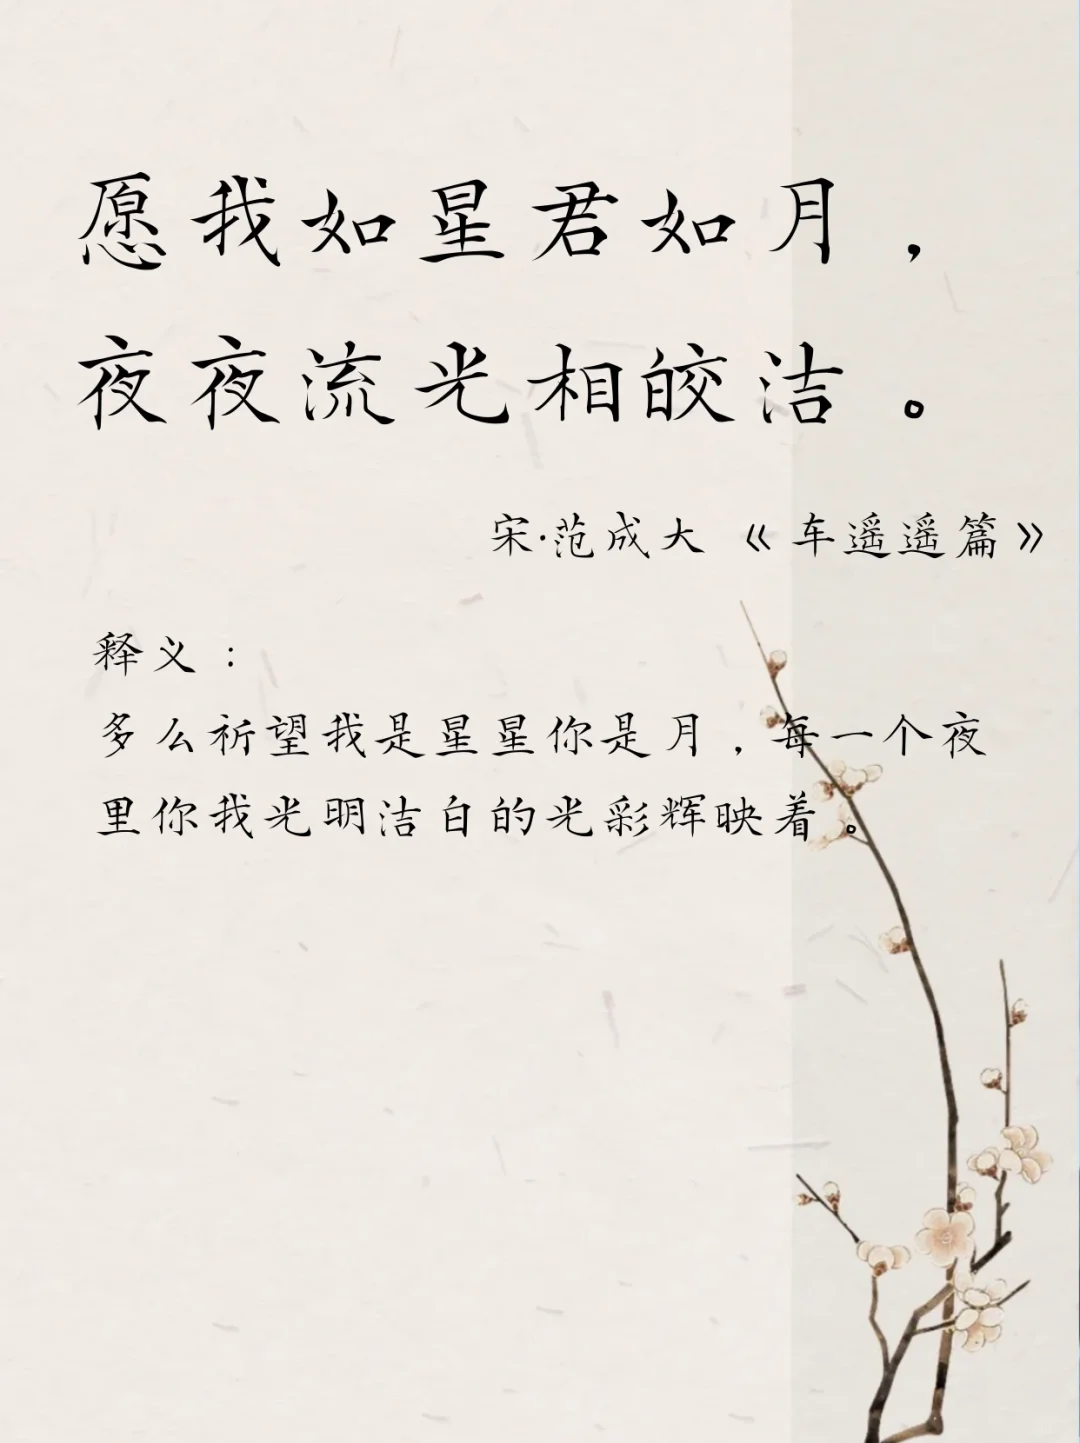 愿我如星君如月，
夜夜流光相皎洁。
宋·范成大《车遥遥篇》
释义：
多么祈望我是星星你是月，每一个夜
里你我光明洁白的光彩辉映着。